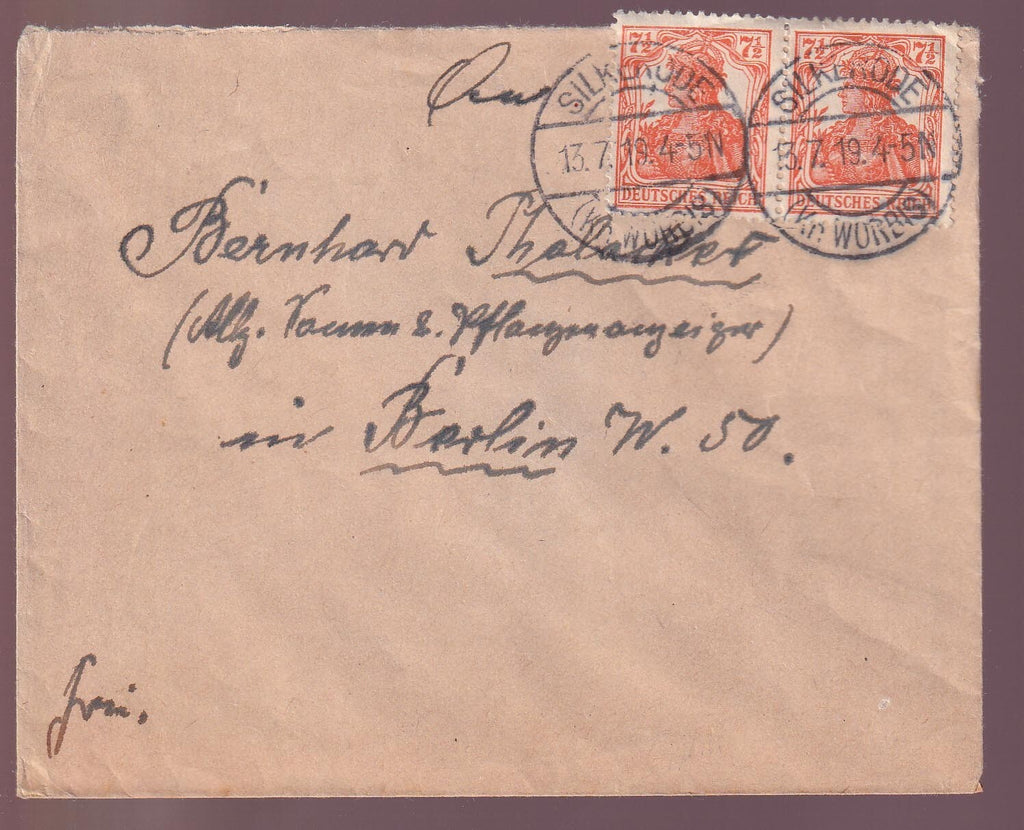 An
7½ 7½ 7½ 7½
DEUTSCHES REICH DEUTSCHES REICH
SILKERODE
13.7.19.4-5N
(Kr. WORBIS)
SILKERODE
13.7.19.4-5N
(Kr. WORBIS)
Bernhard Thalacker
(Allg. Samen & Pflanzenanzeiger)
in Berlin W. 50.
frei.